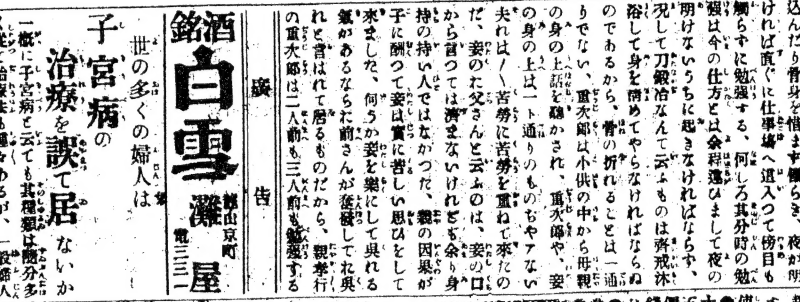 込んだり骨身を惜まず働らき、夜が寐
ければ直ぐに仕事場へ這入つて傍目も
觸らずに勉強する、何しろ其分時の勉
強は今の仕方とは余程違ひまして夜の
明けないうちに起きなければならず、
况して刀鍛冶なんて云ふものは齊戒沐
浴して身を淸めてやらなければならぬ
のであるから、骨の折れることは一通
りでない、重次郎は小供の中から母親
の身の上話を聽かされ、重次郎や、妾
の身の上は一ト通りのものぢやアない
夫れは/\苦勞に苦勞を重ねて來たの
だ、妾のた父さんと云ふのは、妾の口
から言つては濟まないけれども余り身
持の持い人ではなかつた、親の因果が
子に酬つて妾は實に苦しい思ひをして
來ました、何うか妾を樂にして呉れる
氣があるならた前さんが奮發してた呉
れと言はれて居るものだから、親孝行
の重次郎は二人前も三人前も勉強する
廣告
銘酒
白雪
龍山京町
灘屋
電三三一
世の多くの婦人は
子宮病の
治療を誤て居ないか
一概に子宮病と云ても其種類は隨分多